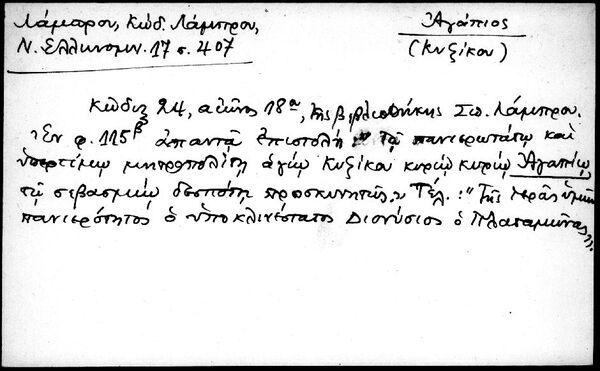 Λάμπρου, Κώδ. Λάμπρου,
Ν. Ἑλληνομν. 17 σ. 407
Ἀγάπιος
(Κυζίκου)
Κῶδιξ 24, αἰῶνος 18ου, τῆς βιβλιοθήκης Σπ. Λάμπρου.
Ἐν φ. 115β ἀπαντᾷ ἐπιστολὴ „ τῷ πανιερωτάτῳ καὶ
ὑπερτίμῳ μητροπολίτῃ ἁγίῳ Κυζίκου κυρίῳ κυρίῳ Ἀγαπίῳ,
τῷ σεβασμίῳ δεσπότῃ προσκυνητῶς„ Τέλ.: "Τῆς ἱερᾶς ὑμῶν
πανιερότητος ὁ ὑποκλινέστατος Διονύσιος ὁ Πλαταμῶνος„.